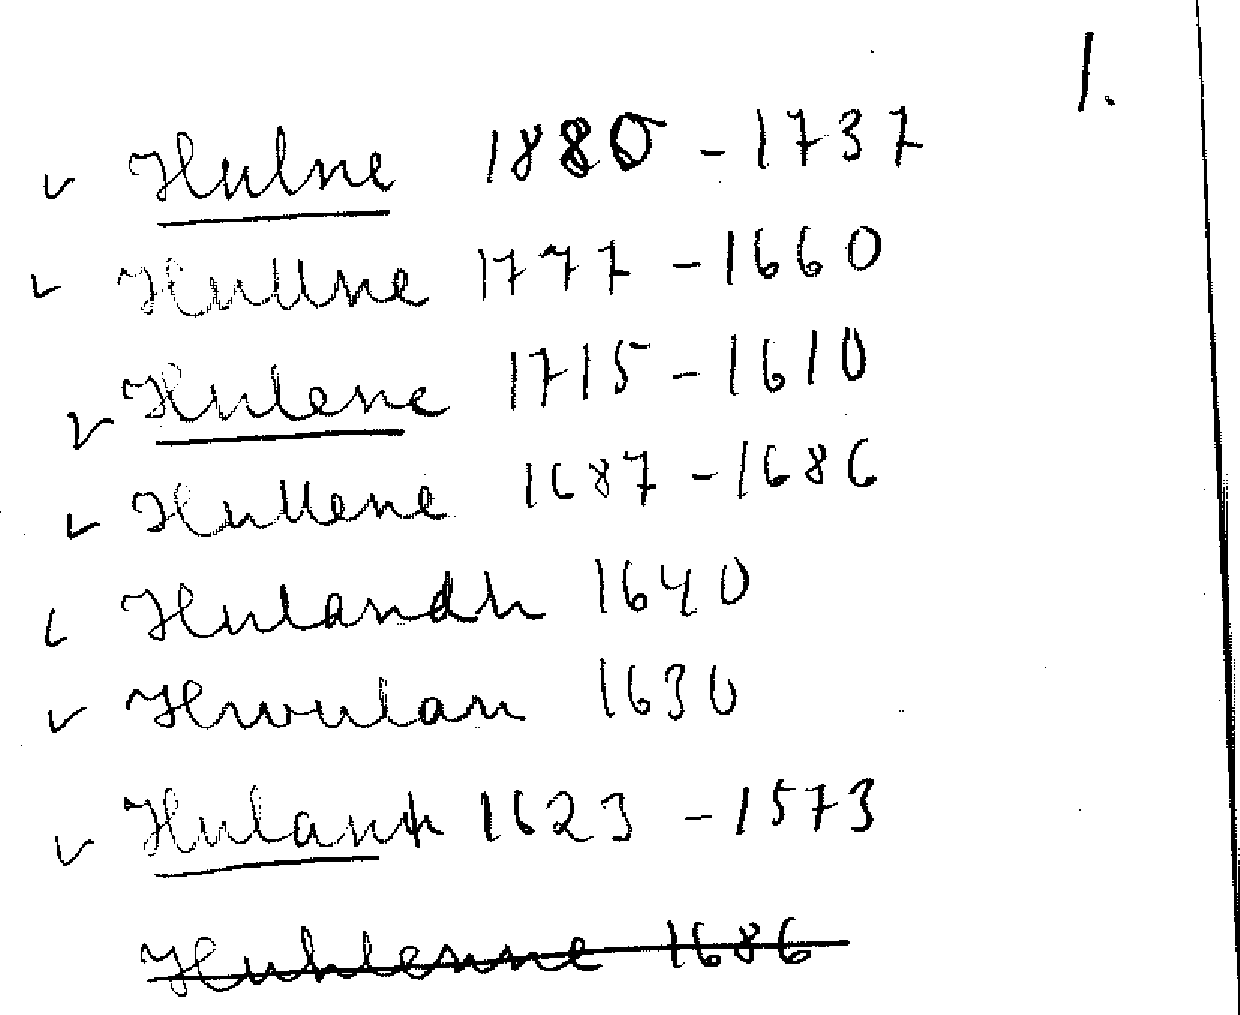 1.
Hulne 1880 - 1737
Hullne 1777 - 1660
Hulene 1715 - 1610
Hullene 1687 - 1686
Hulandh 1640
Hwulan 1630
Hulanh 1623 - 1573
Huhlenne 1686